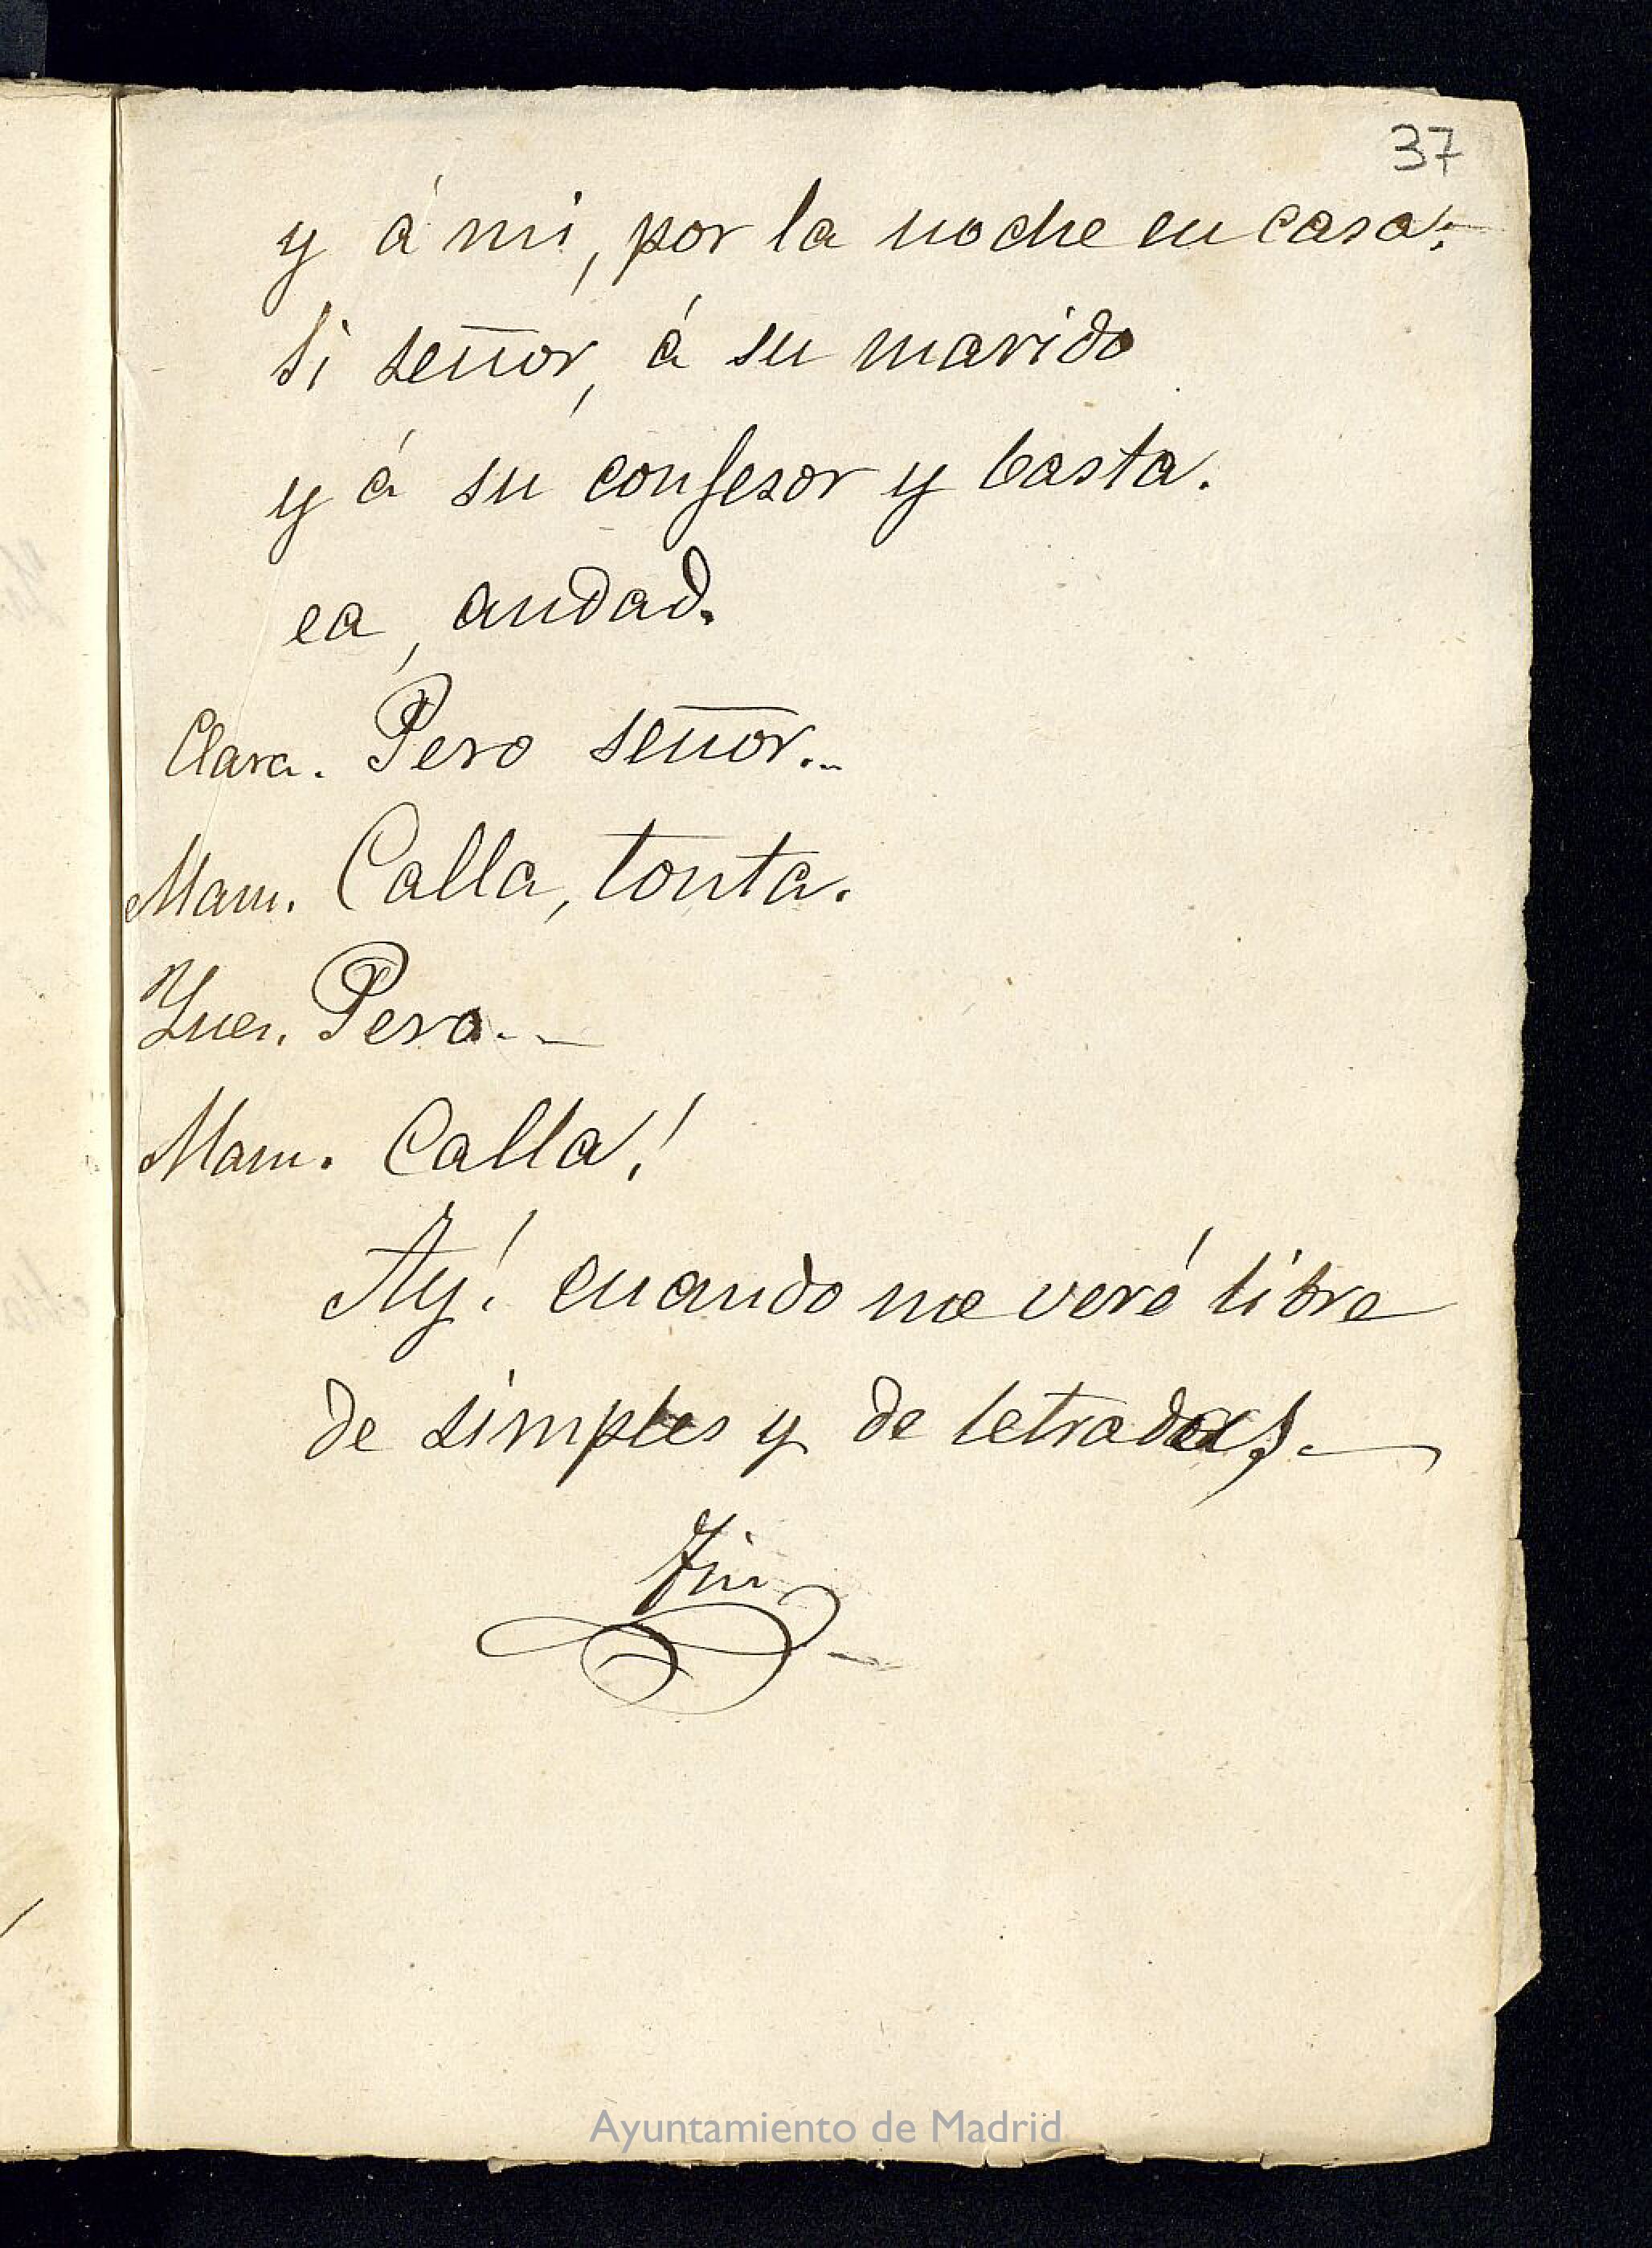 37
y á mi, por la noche en casa;
Si señor, á su marido
y á su confesor y basta.
ea, andad.
Clara. Pero señor...
Mam. Calla, tonta.
Pero...
Mam. Calla!
Ay! cuando me veré libre
de simples y de letradas.
Fin
Ayuntamiento de Madrid